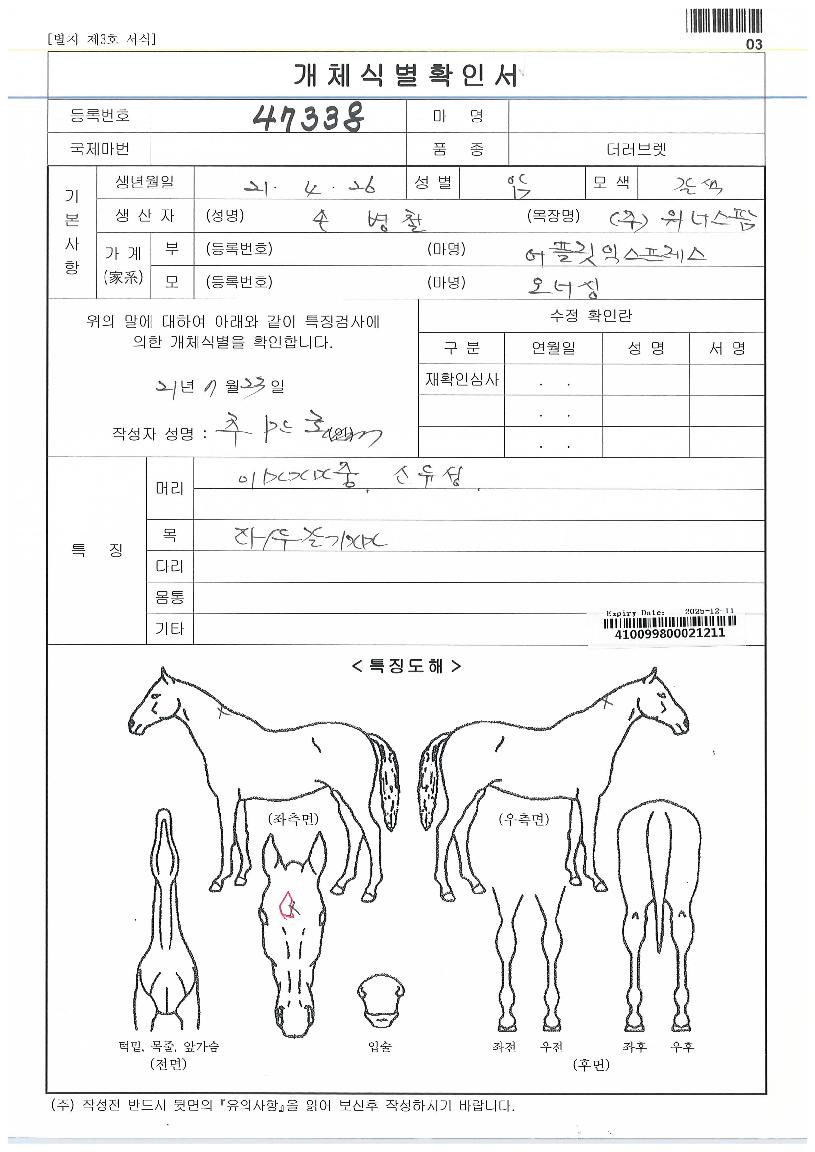 [별지 제3호 서식]
03
개체식별확인서
등록번호 마 명
국제마번 품 종 더러브렛
기본사항
생년월일 21. 4. 26 성별 암 모색 갈색
생산자 (성명) 손병철 (목장명) (주) 위너스팜
가계(家系) 부 (등록번호) (마명) 어플릿익스프레스
모 (등록번호) (마명) 오너싱
위의 말에 대하여 아래와 같이 특징검사에
의한 개체식별을 확인합니다.
21년 7월 23일
작성자 성명 : (인)
수정 확인란
구 분 연월일 성 명 서 명
재확인심사 . .
. .
. .
특 징
머리
목
다리
몸통
기타
Expiry Date: 2025-12-11
410099800021211
< 특징도해 >
(좌측면) (우측면)
턱밑, 목줄, 앞가슴 입술 좌전 우전 좌후 우후
(전면) (후면)
(주) 작성전 반드시 뒷면의 『유의사항』을 읽어 보신후 작성하시기 바랍니다.